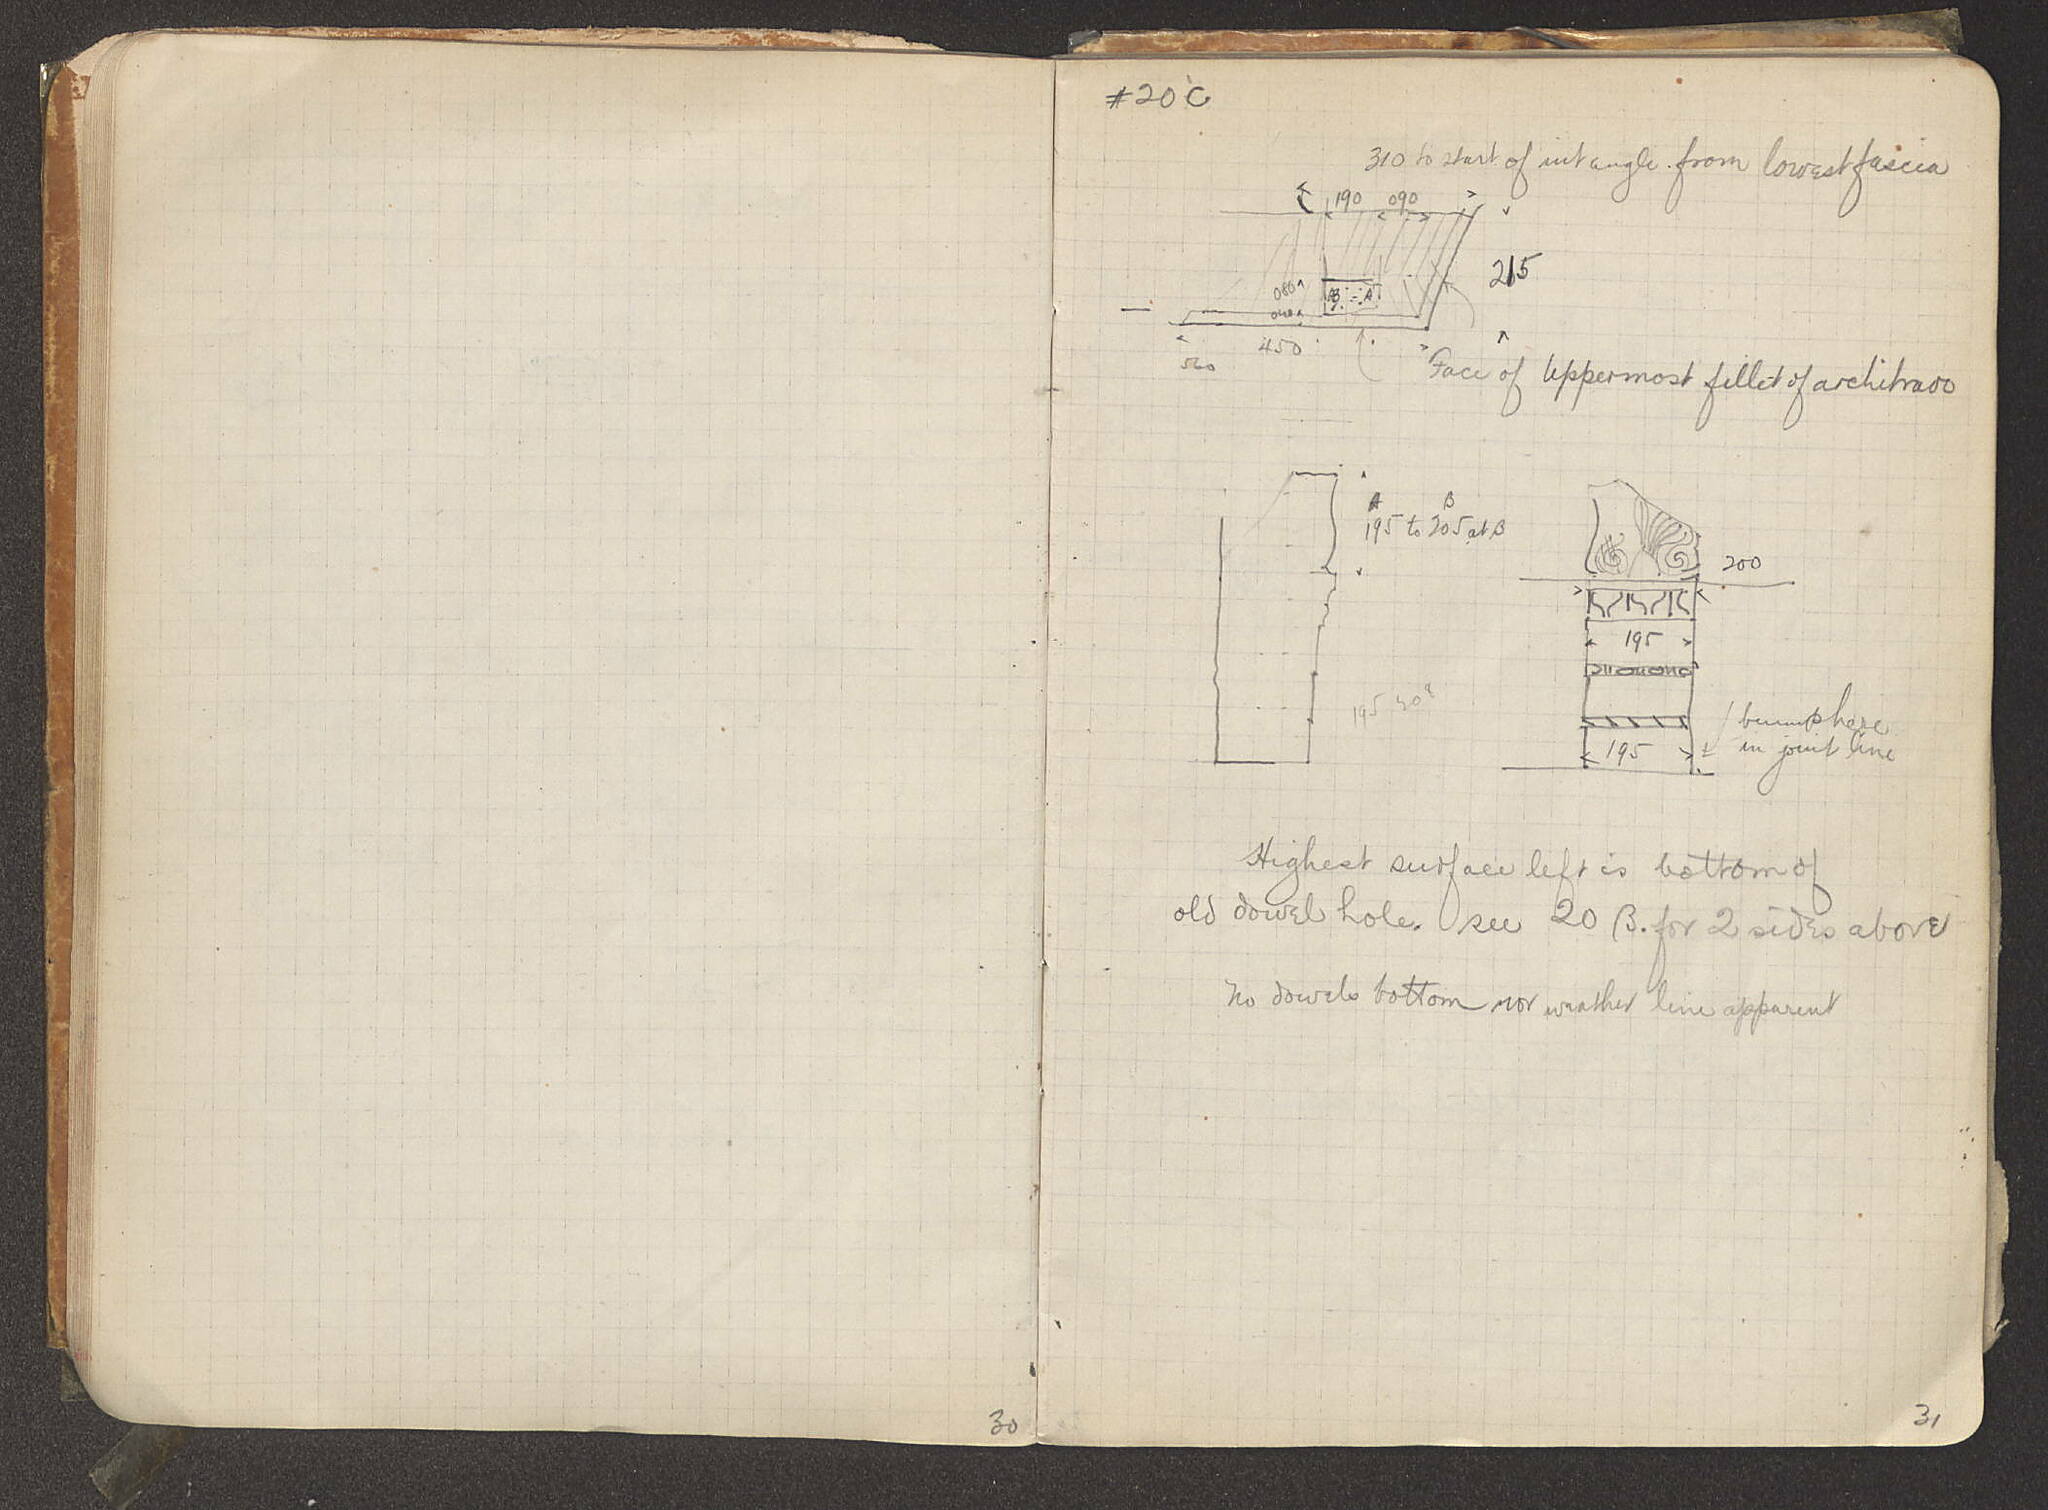 #20 C
310 to start of int angle from lowest fascia
190 090
215
080
040
A
450
560
Face of Uppermost fillet of architrave
A B
195 to 205 at B
200
195
195
bump here
195
in joint line
Highest surface left is bottom of
old dowel hole. see 20 B. for 2 sides above
No dowels bottom nor weather line apparent
30
31